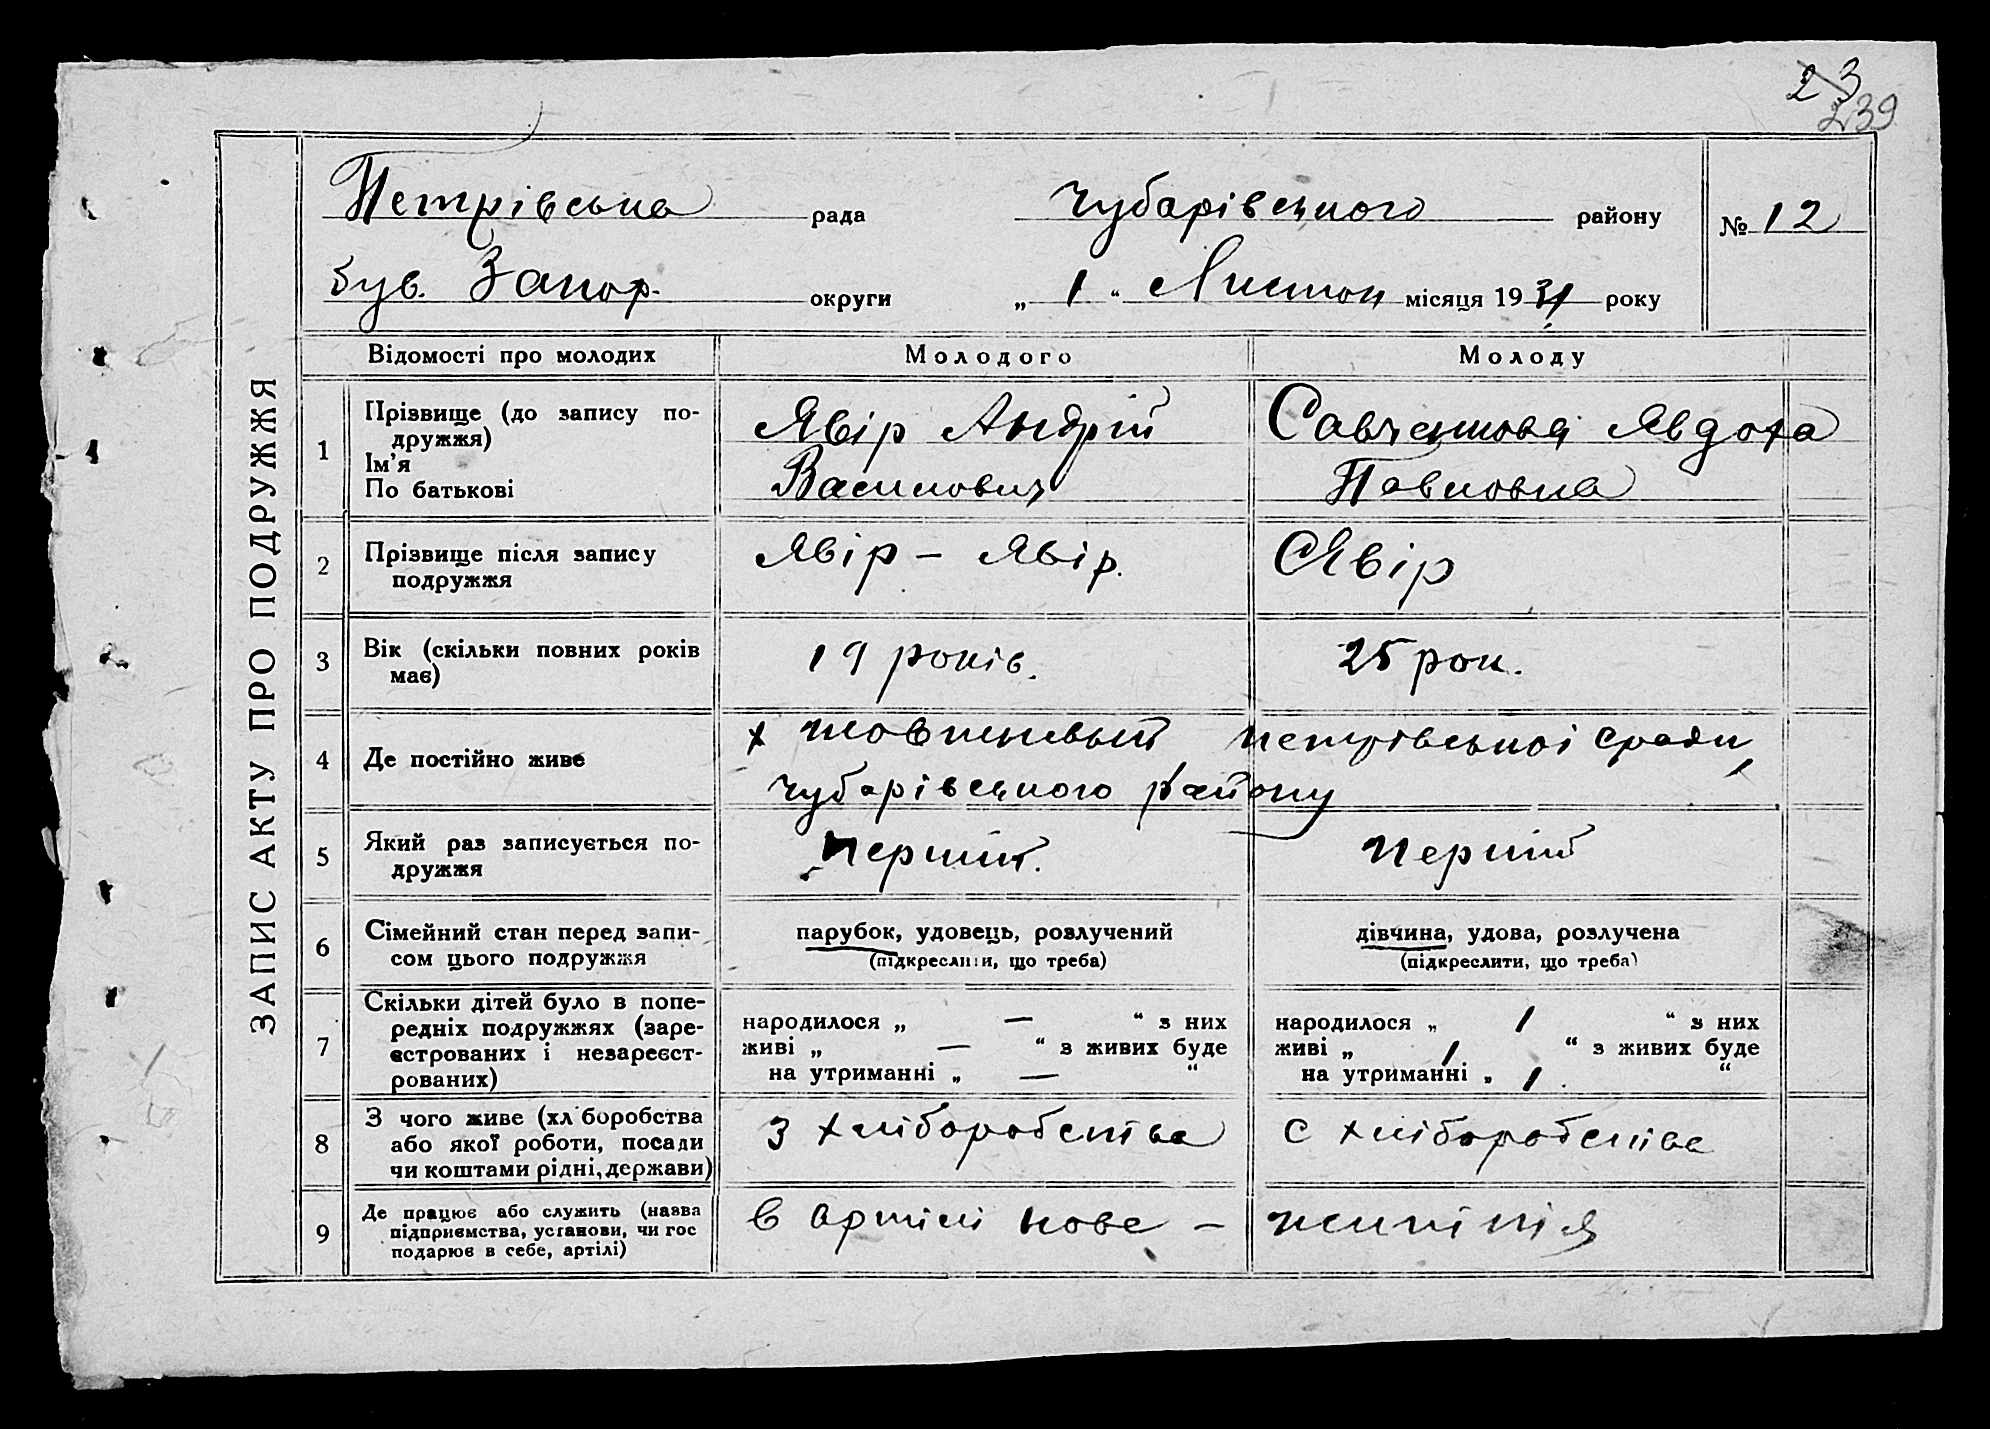 23
239
ЗАПИС АКТУ ПРО ПОДРУЖЖЯ
Петрівська рада Чубарівського району № 12
був. Запор. округи „ 1 “ Листоп місяця 1931 року
Відомості про молодих Молодого Молоду
1 Прізвище (до запису по-
дружжя)
Ім’я
По батькові
Явір Андрій
Василович
Савченкова Явдоха
Павловна
2 Прізвище після запису
подружжя
Явір – Явір.
Явір
3 Вік (скільки повних років
має)
19 років.
25 рок.
4 Де постійно живе
х Жовтневый Петрівської сради,
Чубарівського району
5 Який раз записується по-
дружжя
Перший.
Перший
6 Сімейний стан перед запи-
сом цього подружжя
парубок, удовець, розлучений
(підкреслити, що треба)
дівчина, удова, розлучена
(підкреслити, що треба)
7 Скільки дітей було в попе-
редніх подружжях (заре-
єстрованих і незареєст-
рованих)
народилося „ — “ з них
живі „ — “ з живих буде
на утриманні „ — “
народилося „ 1 “ з них
живі „ 1 “ з живих буде
на утриманні „ 1 “
8 З чого живе (хліборобства
або якої роботи, посади
чи коштами рідні, держави)
З хліборобства
С хліборобства
9 Де працює або служить (назва
підприємства, установи, чи гос
подарює в себе, артілі)
В артілі нове –
життя